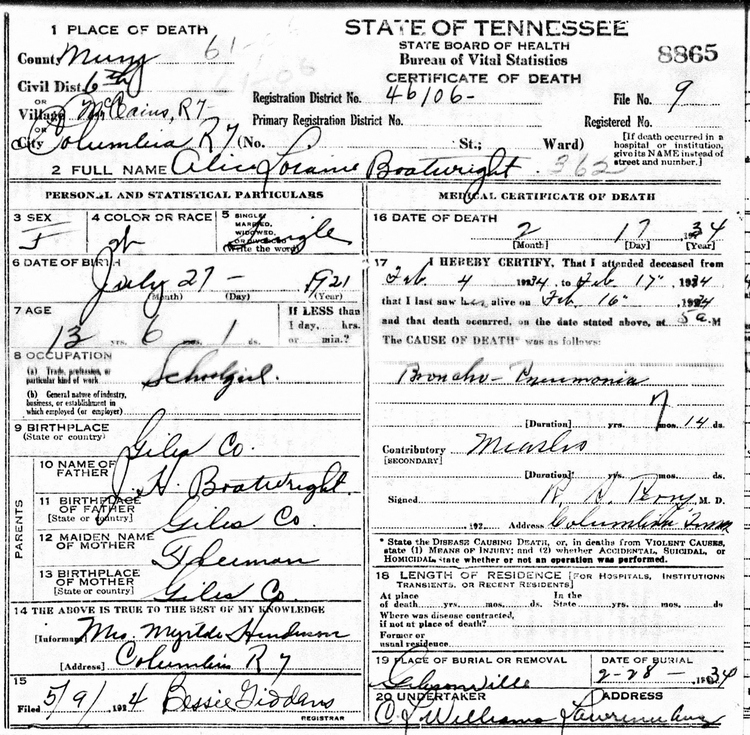 1 PLACE OF DEATH
County Maury
Civil Dist. 6th
OR
Village McCains, R7
OR
City Columbia R7 (No. St.; Ward)
STATE OF TENNESSEE
STATE BOARD OF HEALTH
Bureau of Vital Statistics
CERTIFICATE OF DEATH
8865
Registration District No. 46106-
File No. 9
Primary Registration District No.
Registered No.
[If death occurred in a hospital or institution, give its NAME instead of street and number.]
2 FULL NAME Alice Loraine Boatwright. 362
PERSONAL AND STATISTICAL PARTICULARS
3 SEX
F
4 COLOR OR RACE
W
5 SINGLE, MARRIED, WIDOWED, OR DIVORCED
(Write the word)
Single
6 DATE OF BIRTH
July 27- 1921
(Month) (Day) (Year)
7 AGE
13 yrs. 6 mos. 1 ds.
If LESS than
1 day, hrs.
or min.?
8 OCCUPATION
(a) Trade, profession, or particular kind of work
Schoolgirl.
(b) General nature of industry, business, or establishment in which employed (or employer)
9 BIRTHPLACE
(State or country)
Giles Co.
PARENTS
10 NAME OF FATHER
J. H. Boatwright.
11 BIRTHPLACE OF FATHER
[State or country]
Giles Co.
12 MAIDEN NAME OF MOTHER
13 BIRTHPLACE OF MOTHER
[State or country]
Giles Co
14 THE ABOVE IS TRUE TO THE BEST OF MY KNOWLEDGE
[Informant] Mrs. Myrtle Henderson
[Address] Columbia R7
15
Filed 5/9/ 1924 Bessie Giddens
REGISTRAR
MEDICAL CERTIFICATE OF DEATH
16 DATE OF DEATH
2 17 34
[Month] [Day] [Year]
17 I HEREBY CERTIFY, That I attended deceased from
Feb 4 1934, to Feb 17" 1934
that I last saw her alive on Feb 16" 1934
and that death occurred, on the date stated above, at 5 a.M
The CAUSE OF DEATH* was as follows:
Broncho-Pneumonia
[Duration] yrs. mos. 14 ds.
Contributory Measles
[SECONDARY]
[Duration] yrs. mos. ds.
Signed M. D.
192 Address Columbia Tenn
* State the DISEASE CAUSING DEATH, or, in deaths from VIOLENT CAUSES, state (1) MEANS OF INJURY; and (2) whether ACCIDENTAL, SUICIDAL, or HOMICIDAL state whether or not an operation was performed.
18 LENGTH OF RESIDENCE [FOR HOSPITALS, INSTITUTIONS
TRANSIENTS, OR RECENT RESIDENTS]
At place of death yrs. mos. ds. In the State yrs. mos. ds
Where was disease contracted, if not at place of death?
Former or usual residence
19 PLACE OF BURIAL OR REMOVAL
Gibsonville
DATE OF BURIAL
2-28-1934
20 UNDERTAKER
C J Williams
ADDRESS
Lawrenceburg